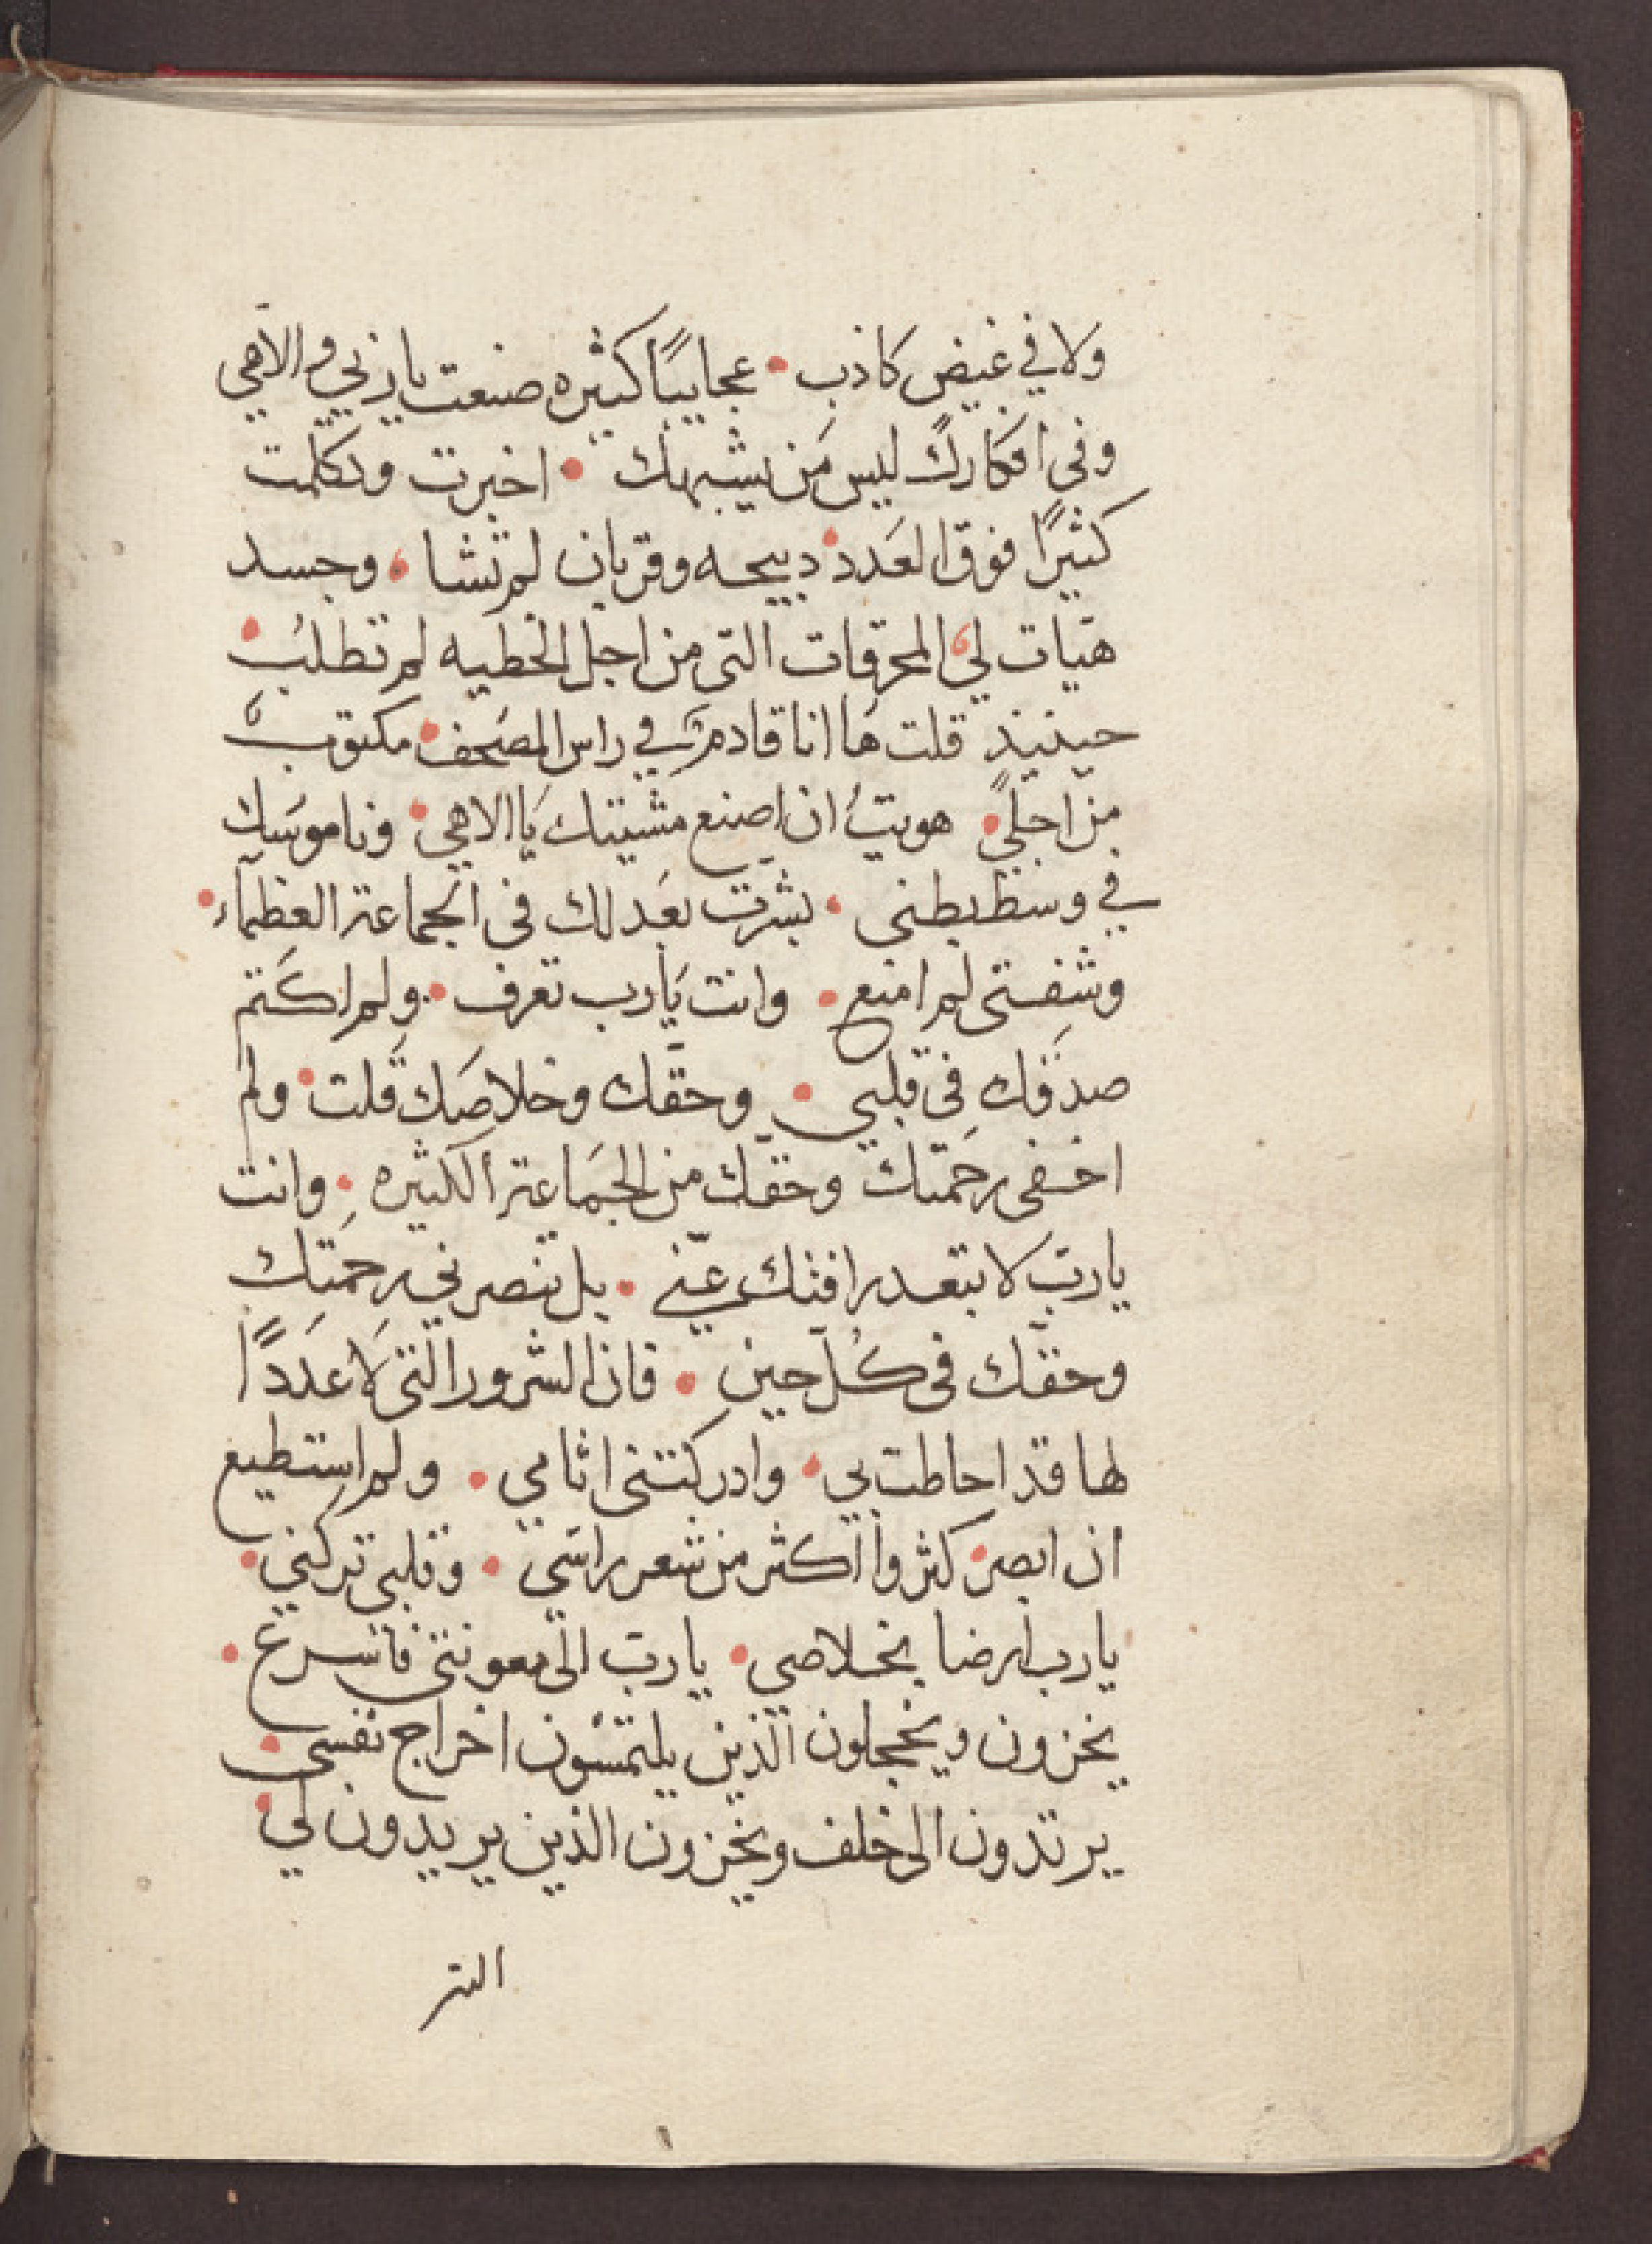 ولا في غيض كاذب • عجايبًا كثيره صنعت ياربي والاهي
وفى افكارك ليس من يشبهك • اخبرت وتكلمت
كثيرًا فوق العدد • دبيحه وقربان لم تشا • وجسد
هيات لي • المحرقات التى من اجل الخطيه لم تطلب •
حينيذ قلت ها انا قادم في راس المصحف • مكتوب
من اجلي • هويت ان اصنع مشيتك يا الاهي • وناموسك
في وسط بطنى • بشرت بعدلك فى الجماعة العظماء •
وشفتى لم امنع • وانت يارب تعرف • ولم اكتم
صدقك فى قلبي • وحقك وخلاصك قلت • ولم
اخفى رحمتك وحقك من الجماعة الكثيره • وانت
يارب لا تبتعد رافتك عنّي • بل تنصرني رحمتك
وحقك فى كل حين • فان الشرور التى لا عددًا
لها قد احاطت بي • وادركتنى اثامي • ولم استطيع
ان ابصر • كثروا اكثر من شعر راسي • وقلبي تركني •
يارب ارضا بخلاصي • يارب الى معونتى فاسرع •
يخزون ويخجلون الذين يلتمسون اخراج نفسي •
يرتدون الى خلف ويخزون الذين يريدون لي •
الشر